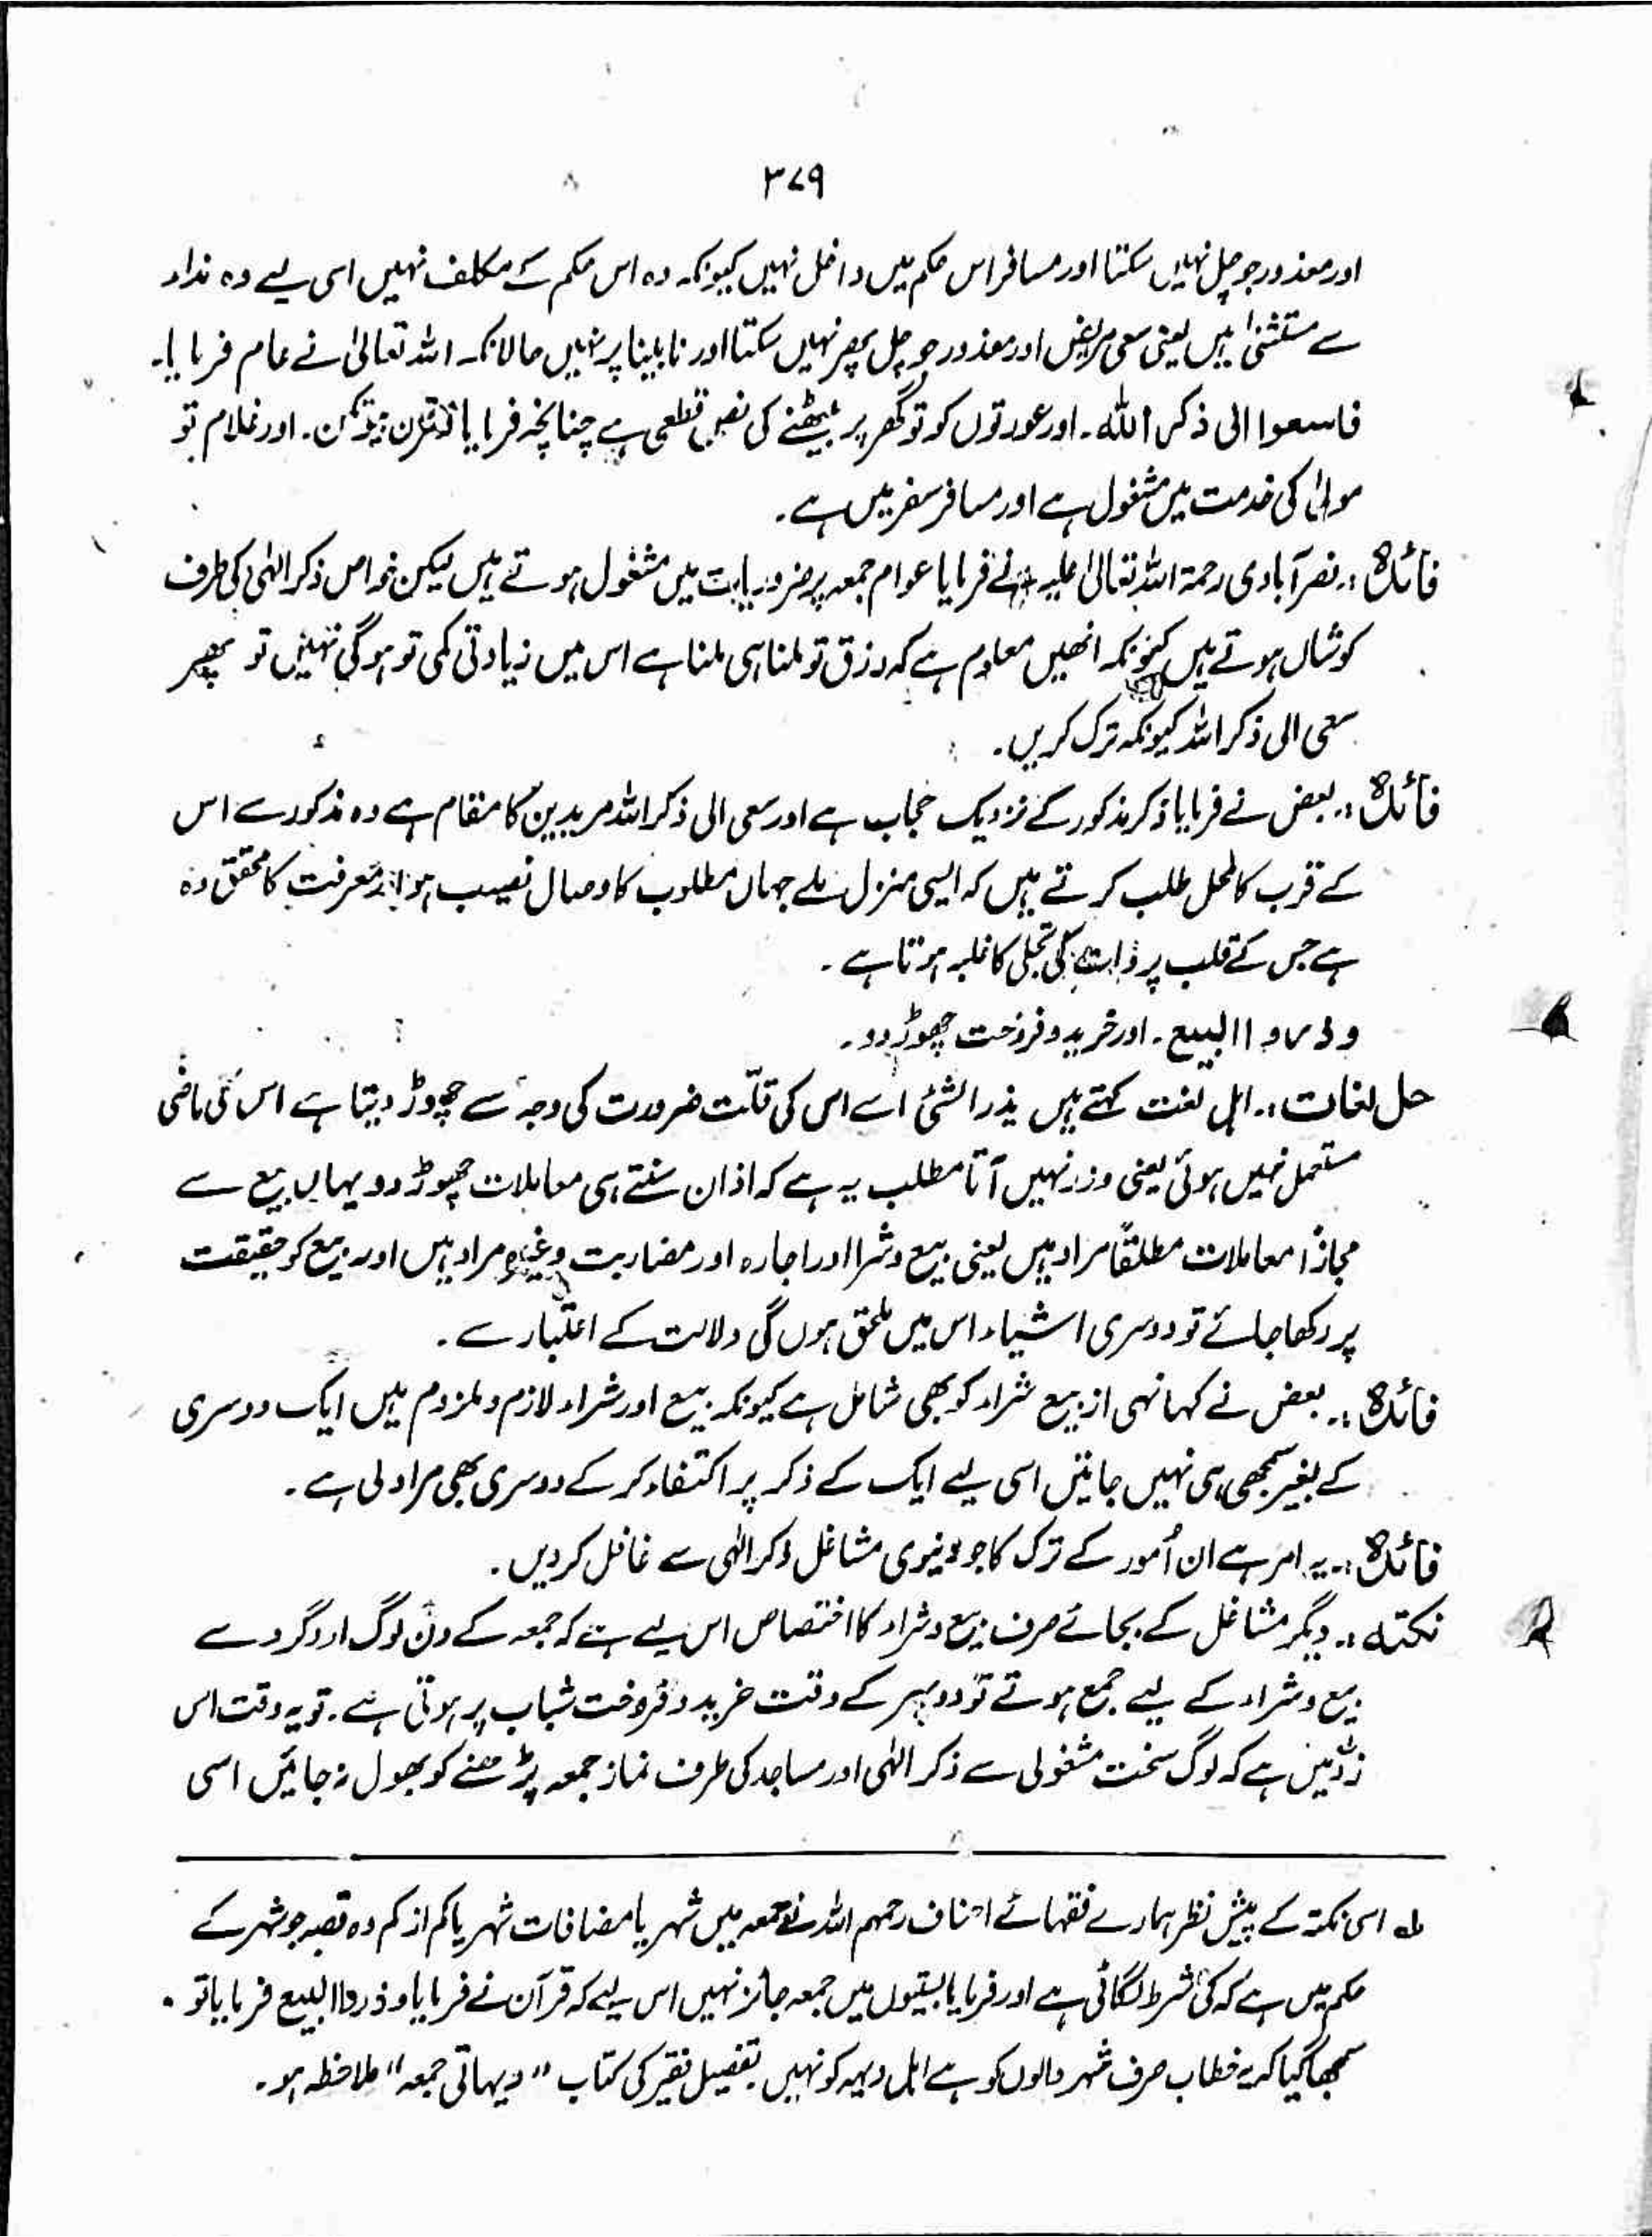 ۳۷۹
اور معذور جو چل نہیں سکتا اور مسافر اس حکم میں داخل نہیں کیونکہ وہ اس حکم کے مکلف نہیں اسی لیے وہ نداء
سے مستثنیٰ ہیں یعنی سعی مریض اور معذور جو چل پھر نہیں سکتا اور نابینا پر نہیں حالانکہ اللہ تعالیٰ نے عام فرمایا۔
فاسعوا الی ذکر اللہ۔ اور عورتوں کو تو گھر پر بیٹھنے کی نص قطعی ہے چنانچہ فرمایا وقرن فی بیوتکن۔ اور غلام تو
مولیٰ کی خدمت میں مشغول ہے اور مسافر سفر میں ہے۔
فائدہ :۔ نصر آبادی رحمۃ اللہ تعالیٰ علیہ نے فرمایا عوام جمعہ پر ضروریات میں مشغول ہوتے ہیں لیکن خواص ذکر الٰہی کی طرف
کوشاں ہوتے ہیں کیونکہ انھیں معلوم ہے کہ رزق تو ملنا ہی ملنا ہے اس میں زیادتی کمی تو ہوگی نہیں تو پھر
سعی الی ذکر اللہ کیونکہ ترک کریں۔
فائدہ :۔ بعض نے فرمایا ذکر مذکور کے نزدیک حجاب ہے اور سعی الی ذکر اللہ مریدین کا مقام ہے وہ مذکور سے اس
کے قرب کا محل طلب کرتے ہیں کہ ایسی منزل ملے جہاں مطلوب کا وصال نصیب ہو اور معرفت کا محقق وہ
ہے جس کے قلب پر ذات کی تجلی کا غلبہ ہوتا ہے۔
وذروا البیع۔ اور خرید و فروخت چھوڑ دو۔
حل لغات :۔ اہل لغت کہتے ہیں یذر الشئ اسے اس کی قلّت ضرورت کی وجہ سے چھوڑ دیتا ہے اس کی ماضی
مستعمل نہیں ہوئی یعنی وذر نہیں آتا مطلب یہ ہے کہ اذان سنتے ہی معاملات چھوڑ دو یہاں بیع سے
مجازاً معاملات مطلقاً مراد ہیں یعنی بیع و شرا اور اجارہ اور مضاربت وغیرہ مراد ہیں اور بیع کو حقیقت
پر رکھا جائے تو دوسری اشیاء اس میں ملحق ہوں گی دلالت کے اعتبار سے۔
فائدہ :۔ بعض نے کہا نہی از بیع شراء کو بھی شامل ہے کیونکہ بیع اور شراء لازم و ملزوم میں ایک دوسری
کے بغیر سمجھی ہی نہیں جاتیں اسی لیے ایک کے ذکر پر اکتفاء کر کے دوسری بھی مراد لی ہے۔
فائدہ :۔ یہ امر ہے ان اُمور کے ترک کا جو دنیوی مشاغل ذکر الٰہی سے غافل کر دیں۔
نکتہ :۔ دیگر مشاغل کے بجائے صرف بیع و شراء کا اختصاص اس لیے ہے کہ جمعہ کے دن لوگ ارد گرد سے
بیع و شراء کے لیے جمع ہوتے تو دوپہر کے وقت خرید و فروخت شباب پر ہوتی ہے۔ تو یہ وقت اس
زد میں ہے کہ لوگ سخت مشغولی سے ذکر الٰہی اور مساجد کی طرف نماز جمعہ پڑھنے کو بھول نہ جائیں اسی
لہ اسی نکتہ کے پیش نظر ہمارے فقہائے احناف رحمہم اللہ نے جمعہ میں شہر یا مضافات شہر یا کم از کم وہ قصبہ جو شہر کے
حکم میں ہے کہ کی شرط لگائی ہے اور فرمایا بستیوں میں جمعہ جائز نہیں اس لیے کہ قرآن نے فرمایا وذروا البیع فرمایا تو
سمجھا گیا کہ یہ خطاب صرف شہر والوں کو ہے اہل دیہہ کو نہیں۔ تفصیل فقیر کی کتاب "دیہاتی جمعہ" ملاحظہ ہو۔